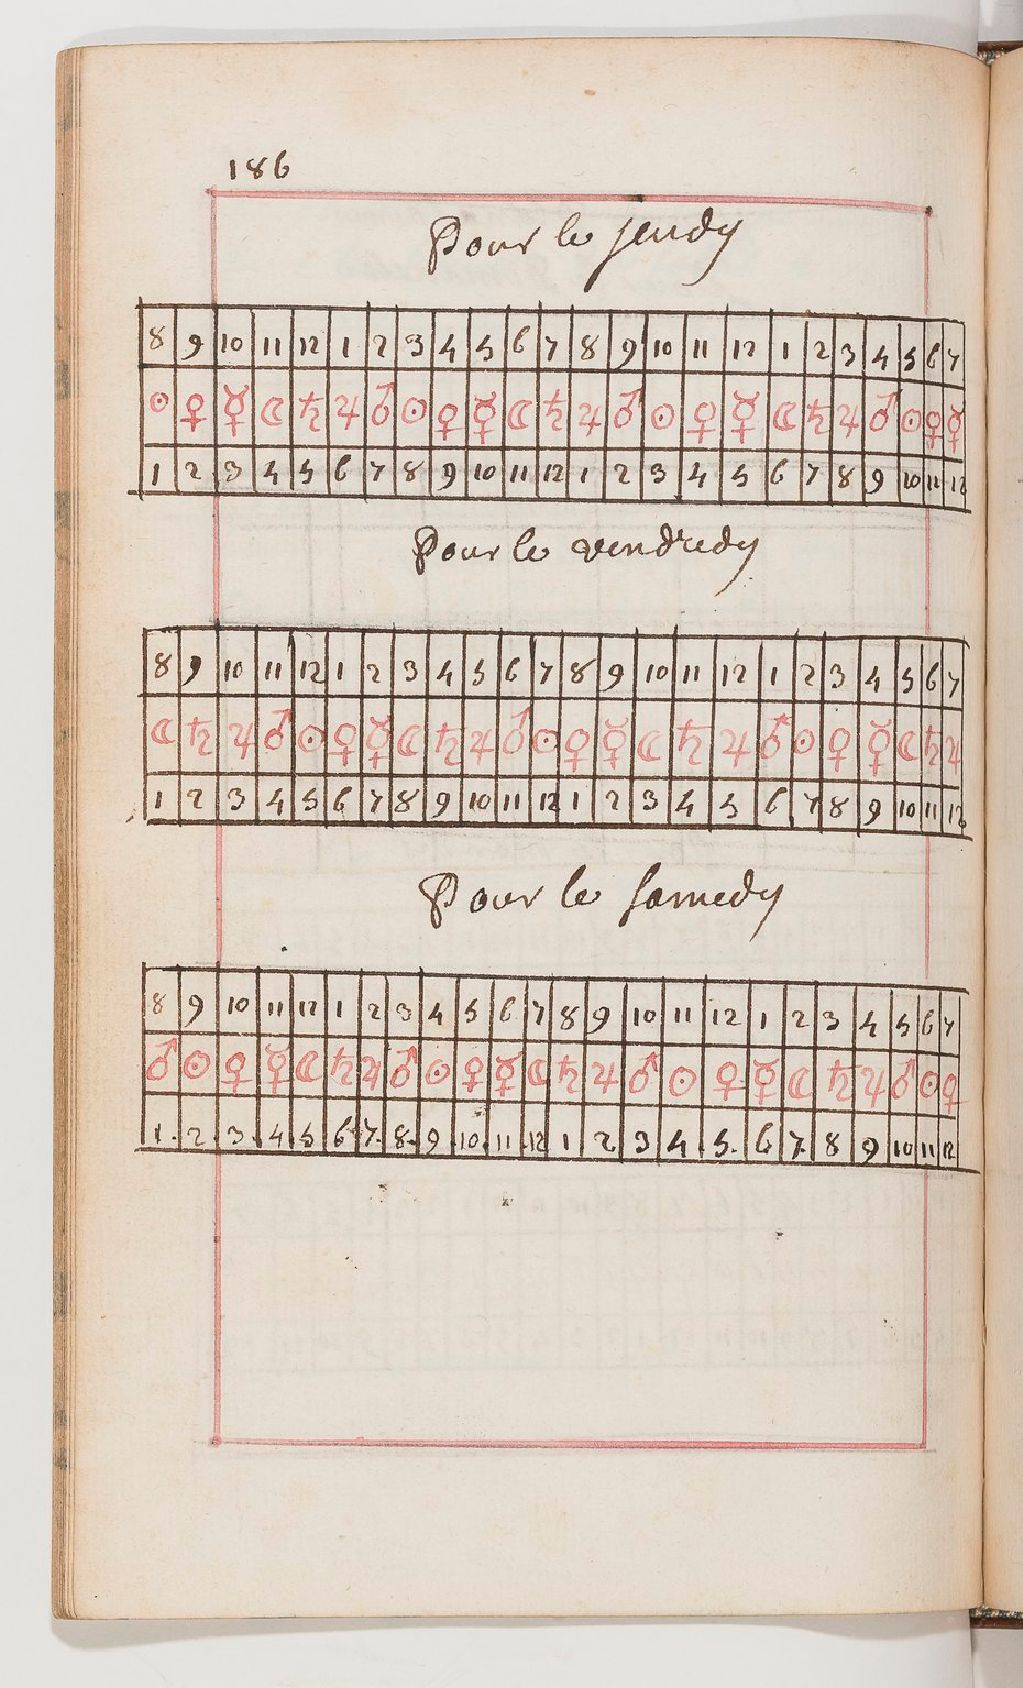 186
Pour le jeudy
8 9 10 11 12 1 2 3 4 5 6 7 8 9 10 11 12 1 2 3 4 5 6 7
☉ ♀ ☿ ☾ ♄ ♃ ♂ ☉ ♀ ☿ ☾ ♄ ♃ ♂ ☉ ♀ ☿ ☾ ♄ ♃ ♂ ☉ ♀ ☿
1 2 3 4 5 6 7 8 9 10 11 12 1 2 3 4 5 6 7 8 9 10 11 12
Pour le vendredy
8 9 10 11 12 1 2 3 4 5 6 7 8 9 10 11 12 1 2 3 4 5 6 7
☾ ♄ ♃ ♂ ☉ ♀ ☿ ☾ ♄ ♃ ♂ ☉ ♀ ☿ ☾ ♄ ♃ ♂ ☉ ♀ ☿ ☾ ♄ ♃
1 2 3 4 5 6 7 8 9 10 11 12 1 2 3 4 5 6 7 8 9 10 11 12
Pour le samedy
8 9 10 11 12 1 2 3 4 5 6 7 8 9 10 11 12 1 2 3 4 5 6 7
♂ ☉ ♀ ☿ ☾ ♄ ♃ ♂ ☉ ♀ ☿ ☾ ♄ ♃ ♂ ☉ ♀ ☿ ☾ ♄ ♃ ♂ ☉ ♀
1. 2. 3. 4. 5 6. 7. 8. 9. 10. 11. 12 1 2 3 4. 5. 6 7. 8 9 10 11 12